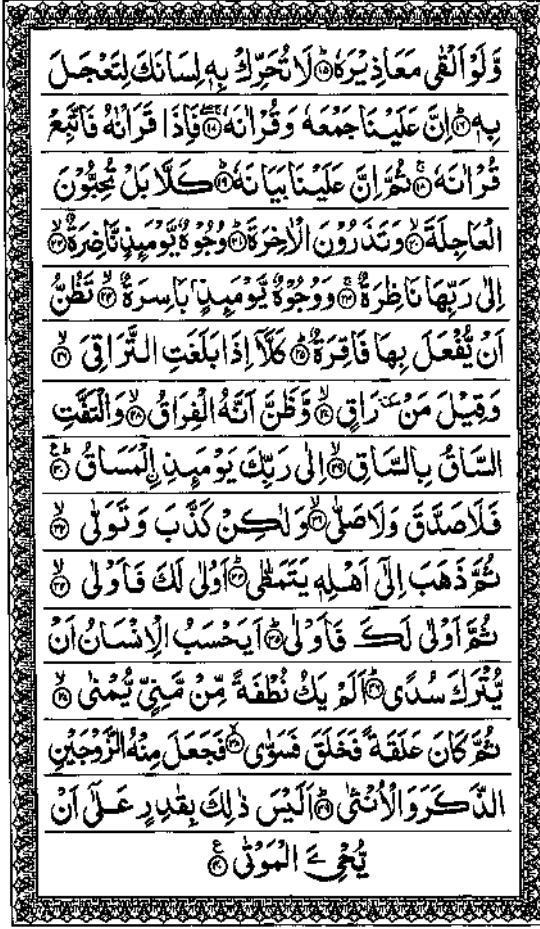 وَّلَوْ اَلْقٰى مَعَاذِيْرَهٗ ؕ﴿۱۵﴾ لَا تُحَرِّكْ بِهٖ لِسَانَكَ لِتَعْجَلَ
بِهٖ ؕ﴿۱۶﴾ اِنَّ عَلَيْنَا جَمْعَهٗ وَ قُرْاٰنَهٗ ۚۖ﴿۱۷﴾ فَاِذَا قَرَاْنٰهُ فَاتَّبِعْ
قُرْاٰنَهٗ ۚ﴿۱۸﴾ ثُمَّ اِنَّ عَلَيْنَا بَيَانَهٗ ؕ﴿۱۹﴾ كَلَّا بَلْ تُحِبُّوْنَ
الْعَاجِلَةَ ۙ﴿۲۰﴾ وَ تَذَرُوْنَ الْاٰخِرَةَ ؕ﴿۲۱﴾ وُجُوْهٌ يَّوْمَىِٕذٍ نَّاضِرَةٌ ۙ﴿۲۲﴾
اِلٰى رَبِّهَا نَاظِرَةٌ ۚ﴿۲۳﴾ وَ وُجُوْهٌ يَّوْمَىِٕذٍۭ بَاسِرَةٌ ۙ﴿۲۴﴾ تَظُنُّ
اَنْ يُّفْعَلَ بِهَا فَاقِرَةٌ ؕ﴿۲۵﴾ كَلَّاۤ اِذَا بَلَغَتِ التَّرَاقِىَ ۙ﴿۲۶﴾
وَ قِيْلَ مَنْ ٚ رَاقٍ ۙ﴿۲۷﴾ وَّ ظَنَّ اَنَّهُ الْفِرَاقُ ۙ﴿۲۸﴾ وَ الْتَفَّتِ
السَّاقُ بِالسَّاقِ ۙ﴿۲۹﴾ اِلٰى رَبِّكَ يَوْمَىِٕذِ ِ۟الْمَسَاقُ ؕ﴿۳۰﴾
فَلَا صَدَّقَ وَ لَا صَلّٰى ۙ﴿۳۱﴾ وَ لٰكِنْ كَذَّبَ وَ تَوَلّٰى ۙ﴿۳۲﴾
ثُمَّ ذَهَبَ اِلٰۤى اَهْلِهٖ يَتَمَطّٰى ؕ﴿۳۳﴾ اَوْلٰى لَكَ فَاَوْلٰى ۙ﴿۳۴﴾
ثُمَّ اَوْلٰى لَكَ فَاَوْلٰى ؕ﴿۳۵﴾ اَيَحْسَبُ الْاِنْسَانُ اَنْ
يُّتْرَكَ سُدًى ؕ﴿۳۶﴾ اَلَمْ يَكُ نُطْفَةً مِّنْ مَّنِىٍّ يُّمْنٰى ۙ﴿۳۷﴾
ثُمَّ كَانَ عَلَقَةً فَخَلَقَ فَسَوّٰى ۙ﴿۳۸﴾ فَجَعَلَ مِنْهُ الزَّوْجَيْنِ
الذَّكَرَ وَ الْاُنْثٰى ؕ﴿۳۹﴾ اَلَيْسَ ذٰلِكَ بِقٰدِرٍ عَلٰۤى اَنْ
يُّحْیِۦَ الْمَوْتٰى ﴿۴۰﴾